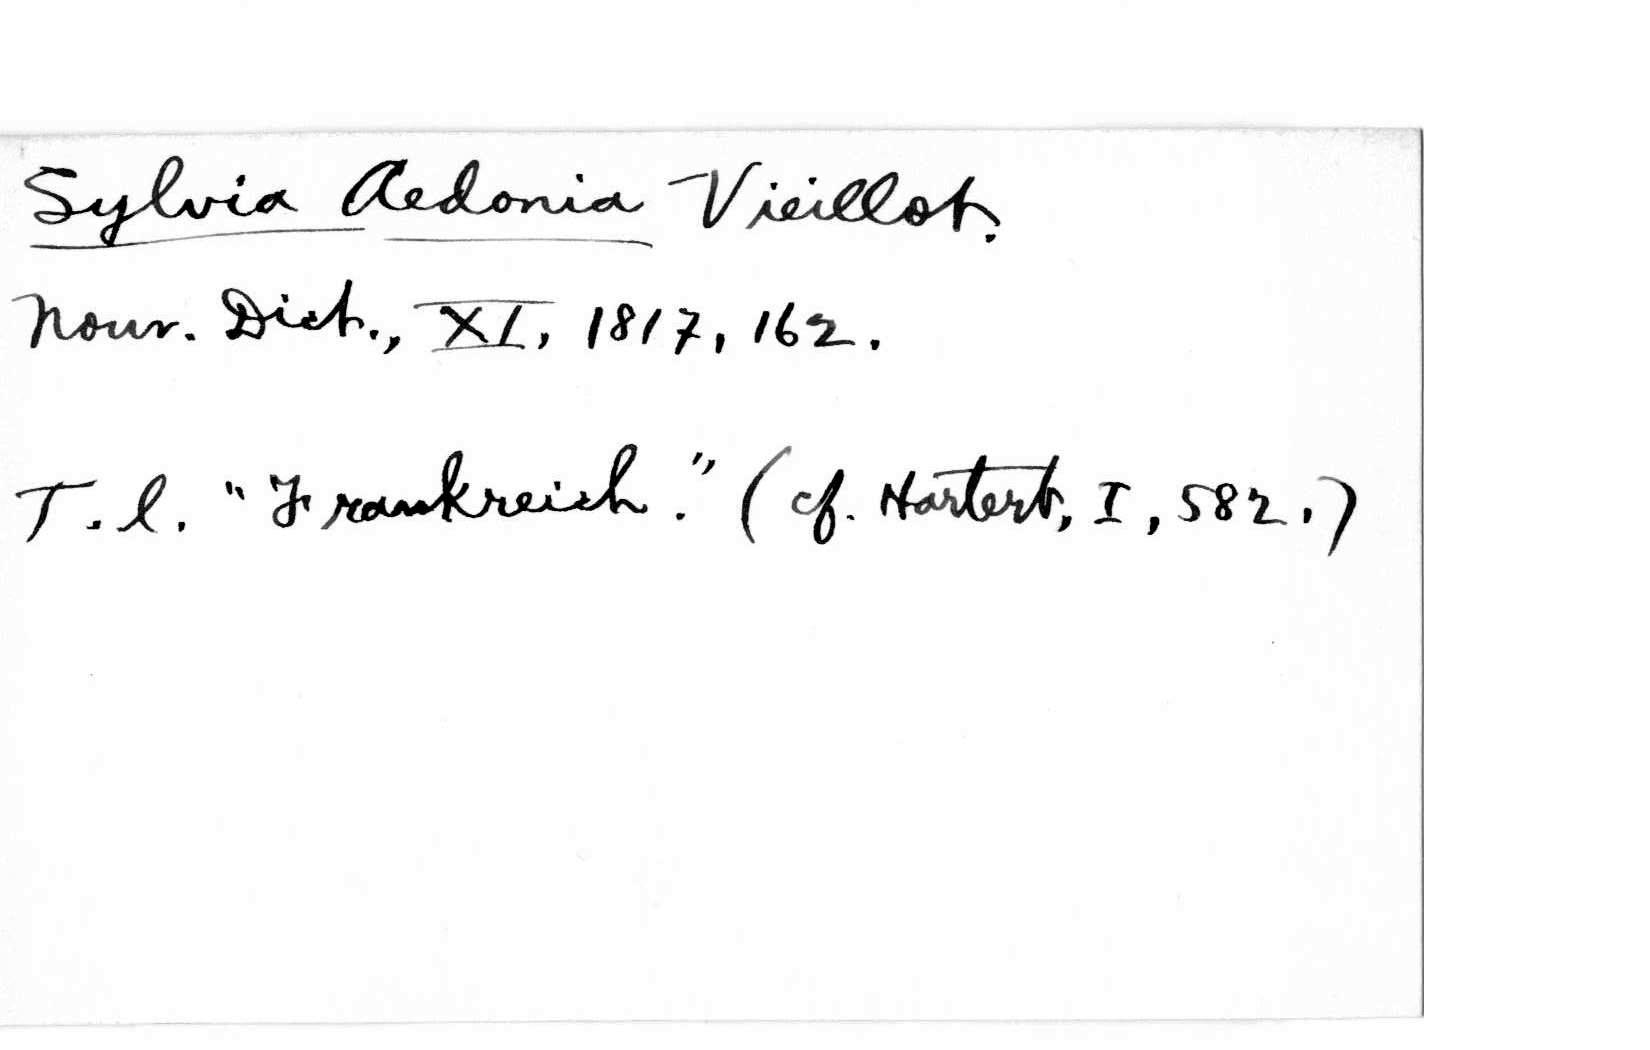 Sylvia Aedonia Vieillot.
Nouv. Dict., XI, 1817, 162.
T. l. "Frankreich." (cf. Hartert, I, 582.)